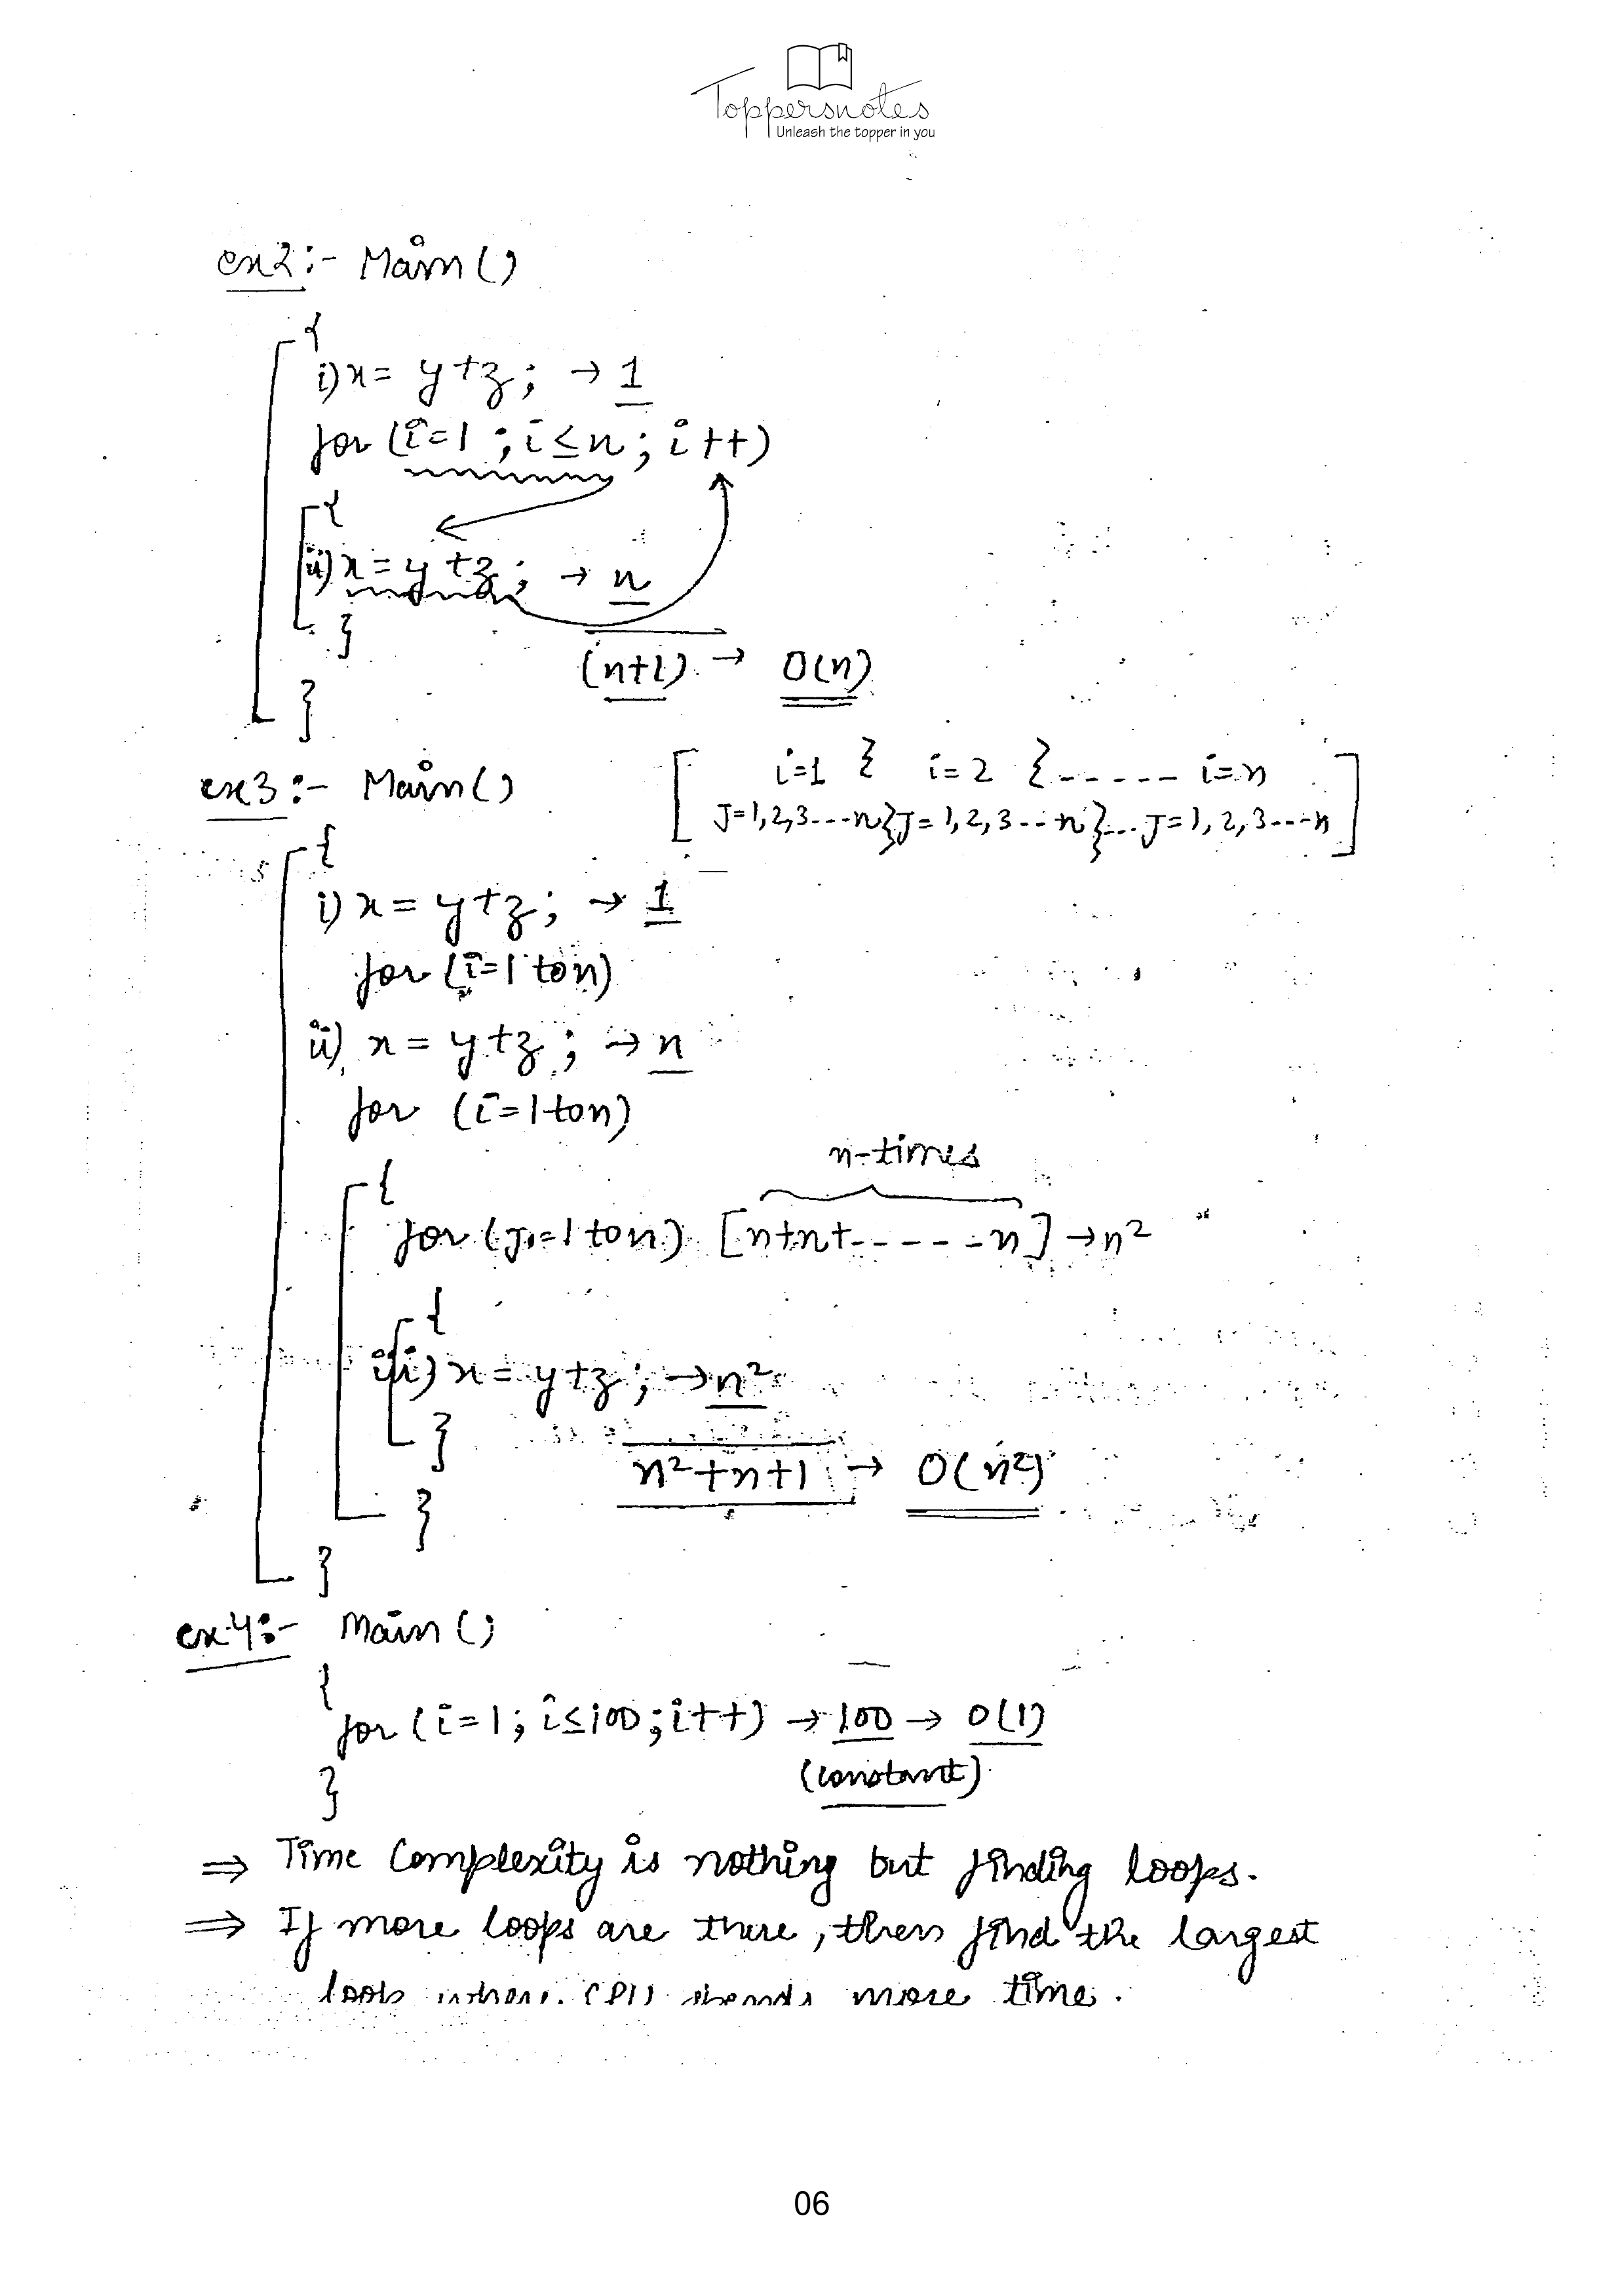 Toppersnotes
Unleash the topper in you
ex2:- Main()
{
i) x = y+z; → 1
for (i=1 ; i≤n ; i++)
{
ii) x = y+z; → n
}
(n+1) → O(n)
}
ex3:- Main()
[ i=1 } i=2 }----- i=n
J=1,2,3---n}J=1,2,3---n}...J=1,2,3---n ]
{
i) x = y+z; → 1
for (i=1 to n)
ii) x = y+z; → n
for (i=1 to n)
{
n-times
for (J=1 to n) [n+n+------n] → n²
{
iii) x = y+z; → n²
}
n²+n+1 → O(n²)
}
}
ex4:- Main()
{
for (i=1; i≤100; i++) → 100 → O(1)
(constant)
}
⇒ Time Complexity is nothing but finding loops.
⇒ If more loops are there, then find the largest
loop where CPU spends more time.
06